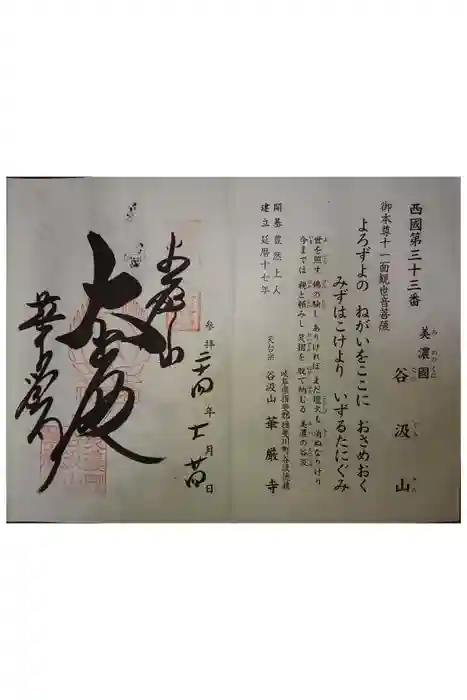 西國第三十三番
美濃國 谷汲山
みののくに たにぐみさん
御本尊十一面観世音菩薩
よろずよの ねがいをここに おさめおく
みずはこけより いずるたにぐみ
世を照す 佛の驗し ありければ まだ燈火も 消ぬなりけり
今までは 親と頼みし 笈摺を 脱て納むる 美濃の谷汲
開基豊然上人
建立延暦十七年
岐阜県揖斐郡揖斐川町谷汲徳積
天台宗 谷汲山 華厳寺
参拝 二十四年 十一月 日
谷汲山
大悲殿
華厳寺